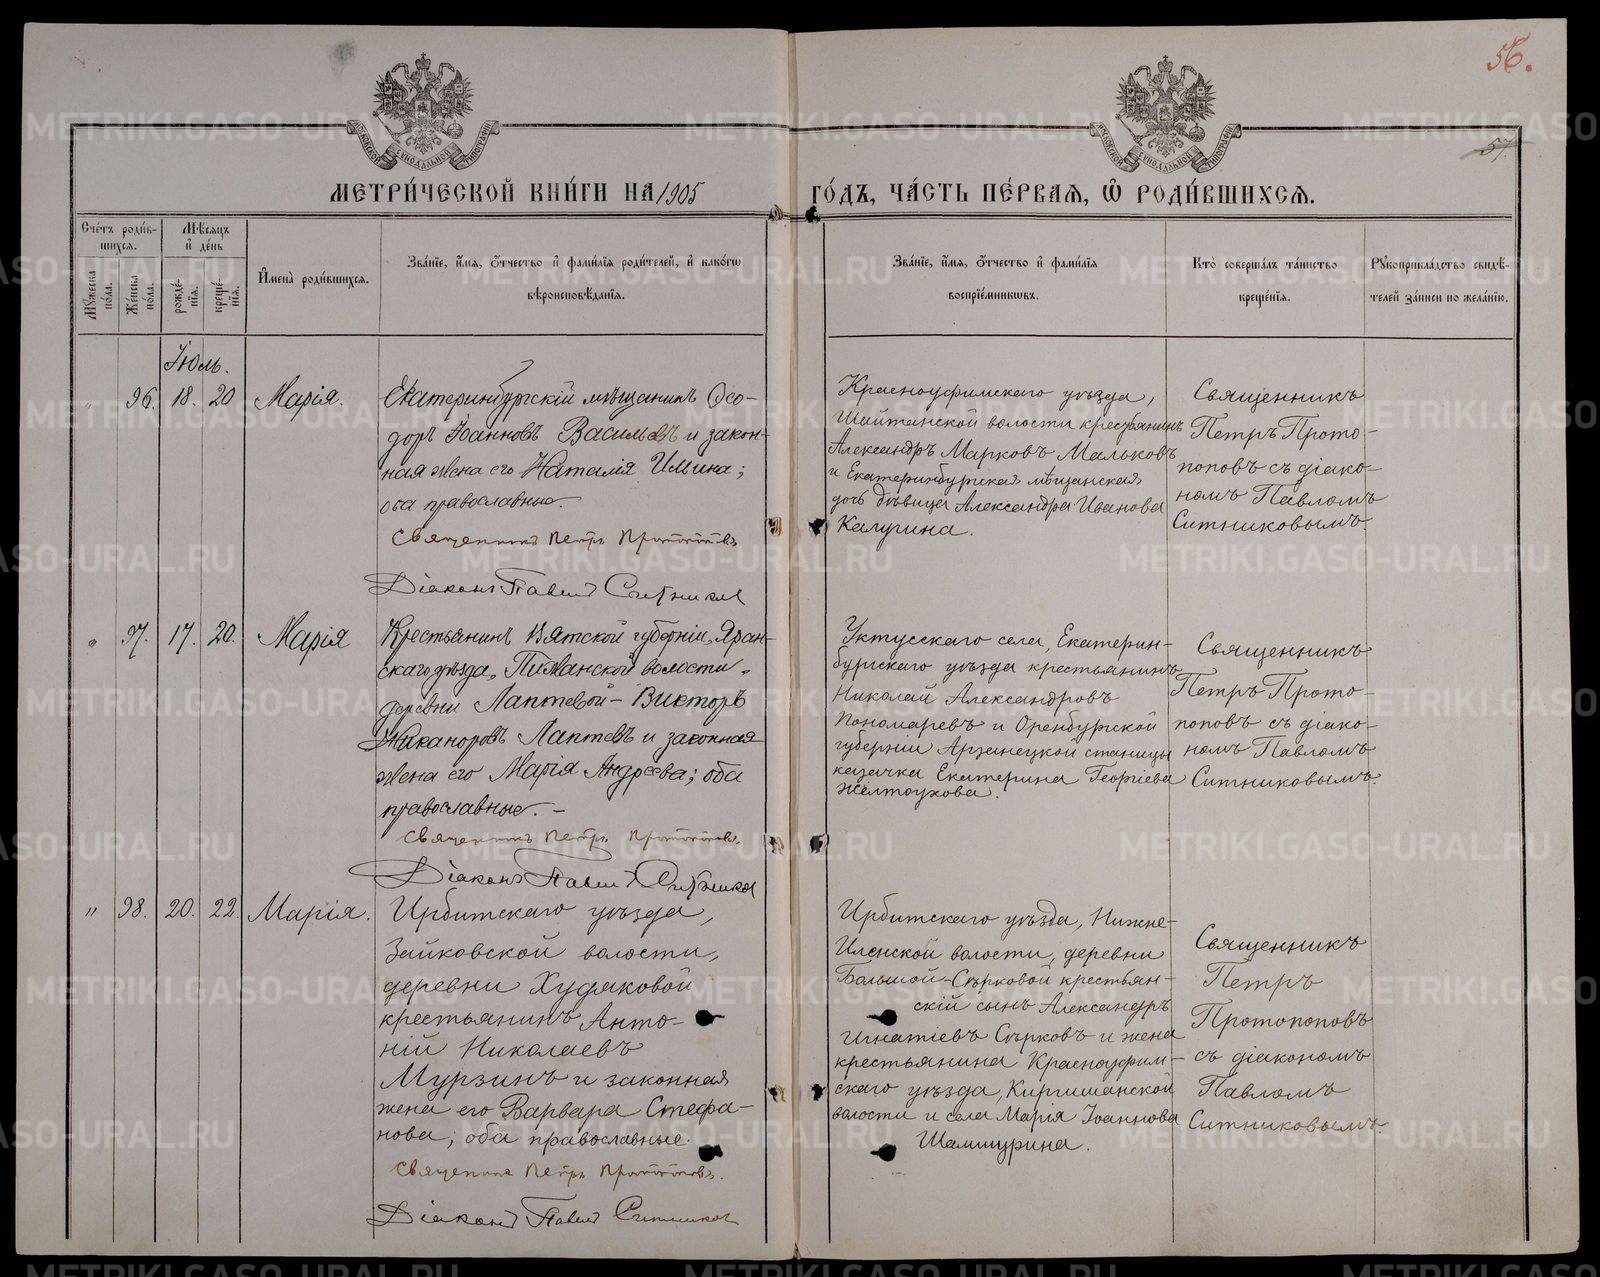 56.
57.
МЕТРИ́ЧЕСКОЙ КНИ́ГИ НА 1905 ГО́ДЪ, ЧА́СТЬ ПЕ́РВАЯ, Ѡ РОДИ́ВШИХСЯ.
Сче́тъ роди́вшихся.
Му́жеска по́ла.
Же́нска по́ла.
Мѣ́сяцъ и҆ де́нь
рожде́нїя.
креще́нїя.
И҆мена̀ роди́вшихся.
Зва́нїе, и҆́мя, ѻ҆́тчество и҆ фами́лїя роди́телей, и҆ како́гѡ
вѣроисповѣ́данїя.
Зва́нїе, и҆́мя, ѻ҆́тчество и҆ фами́лїя
воспрїе́мникѡвъ.
Кто̀ соверша́лъ та́инство
креще́нїя.
Рꙋкоприкла́дство свидѣ́-
телей за́писи по жела́нїю.
Іюль.
„ 96. 18. 20 Марія.
Екатеринбургскій мѣщанинъ Ѳео-
доръ Іоанновъ Васильевъ и закон-
ная жена его Наталія Ильина;
оба православные.
Священникъ Петръ Протопоповъ
Діаконъ Павелъ Ситников
Красноуфимскаго уѣзда,
Шайтанской волости крестьянинъ
Александръ Марковъ Мальковъ
и Екатеринбургская мѣщанская
дочь дѣвица Александра Иванова
Калугина.
Священникъ
Петръ Прото-
поповъ съ діако-
номъ Павломъ
Ситниковымъ.
„ 97. 17. 20. Марія
Крестьянинъ Вятской губерніи, Яран-
скаго уѣзда, Пижанской волости,
деревни Лаптевой - Викторъ
Никаноровъ Лаптевъ и законная
жена его Марія Андреева; оба
православные. -
Священникъ Петръ Протопоповъ.
Діаконъ Павелъ Ситников
Уктусскаго села, Екатерин-
бургскаго уѣзда крестьянинъ
Николай Александровъ
Пономаревъ и Оренбургской
губерніи Арзинецкой станицы
казачка Екатерина Георгіева
Желтоухова.
Священникъ
Петръ Прото-
поповъ съ діако-
номъ Павломъ
Ситниковымъ.
„ 98. 20. 22. Марія.
Ирбитскаго уѣзда,
Зайковской волости,
деревни Худяковой
крестьянинъ Анто-
ній Николаевъ
Мурзинъ и законная
жена его Варвара Стефа-
нова; оба православные.
Священникъ Петръ Протопоповъ.
Діаконъ Павелъ Ситников
Ирбитскаго уѣзда, Нижне-
Иленской волости, деревни
Большой-Сѣрковой крестьян-
скій сынъ Александръ
Игнатіевъ Сѣрковъ и жена
крестьянина Красноуфим-
скаго уѣзда, Киргишанской
волости и села Марія Іоаннова
Шаламурина.
Священникъ
Петръ
Протопоповъ
съ діакономъ
Павломъ
Ситниковымъ.